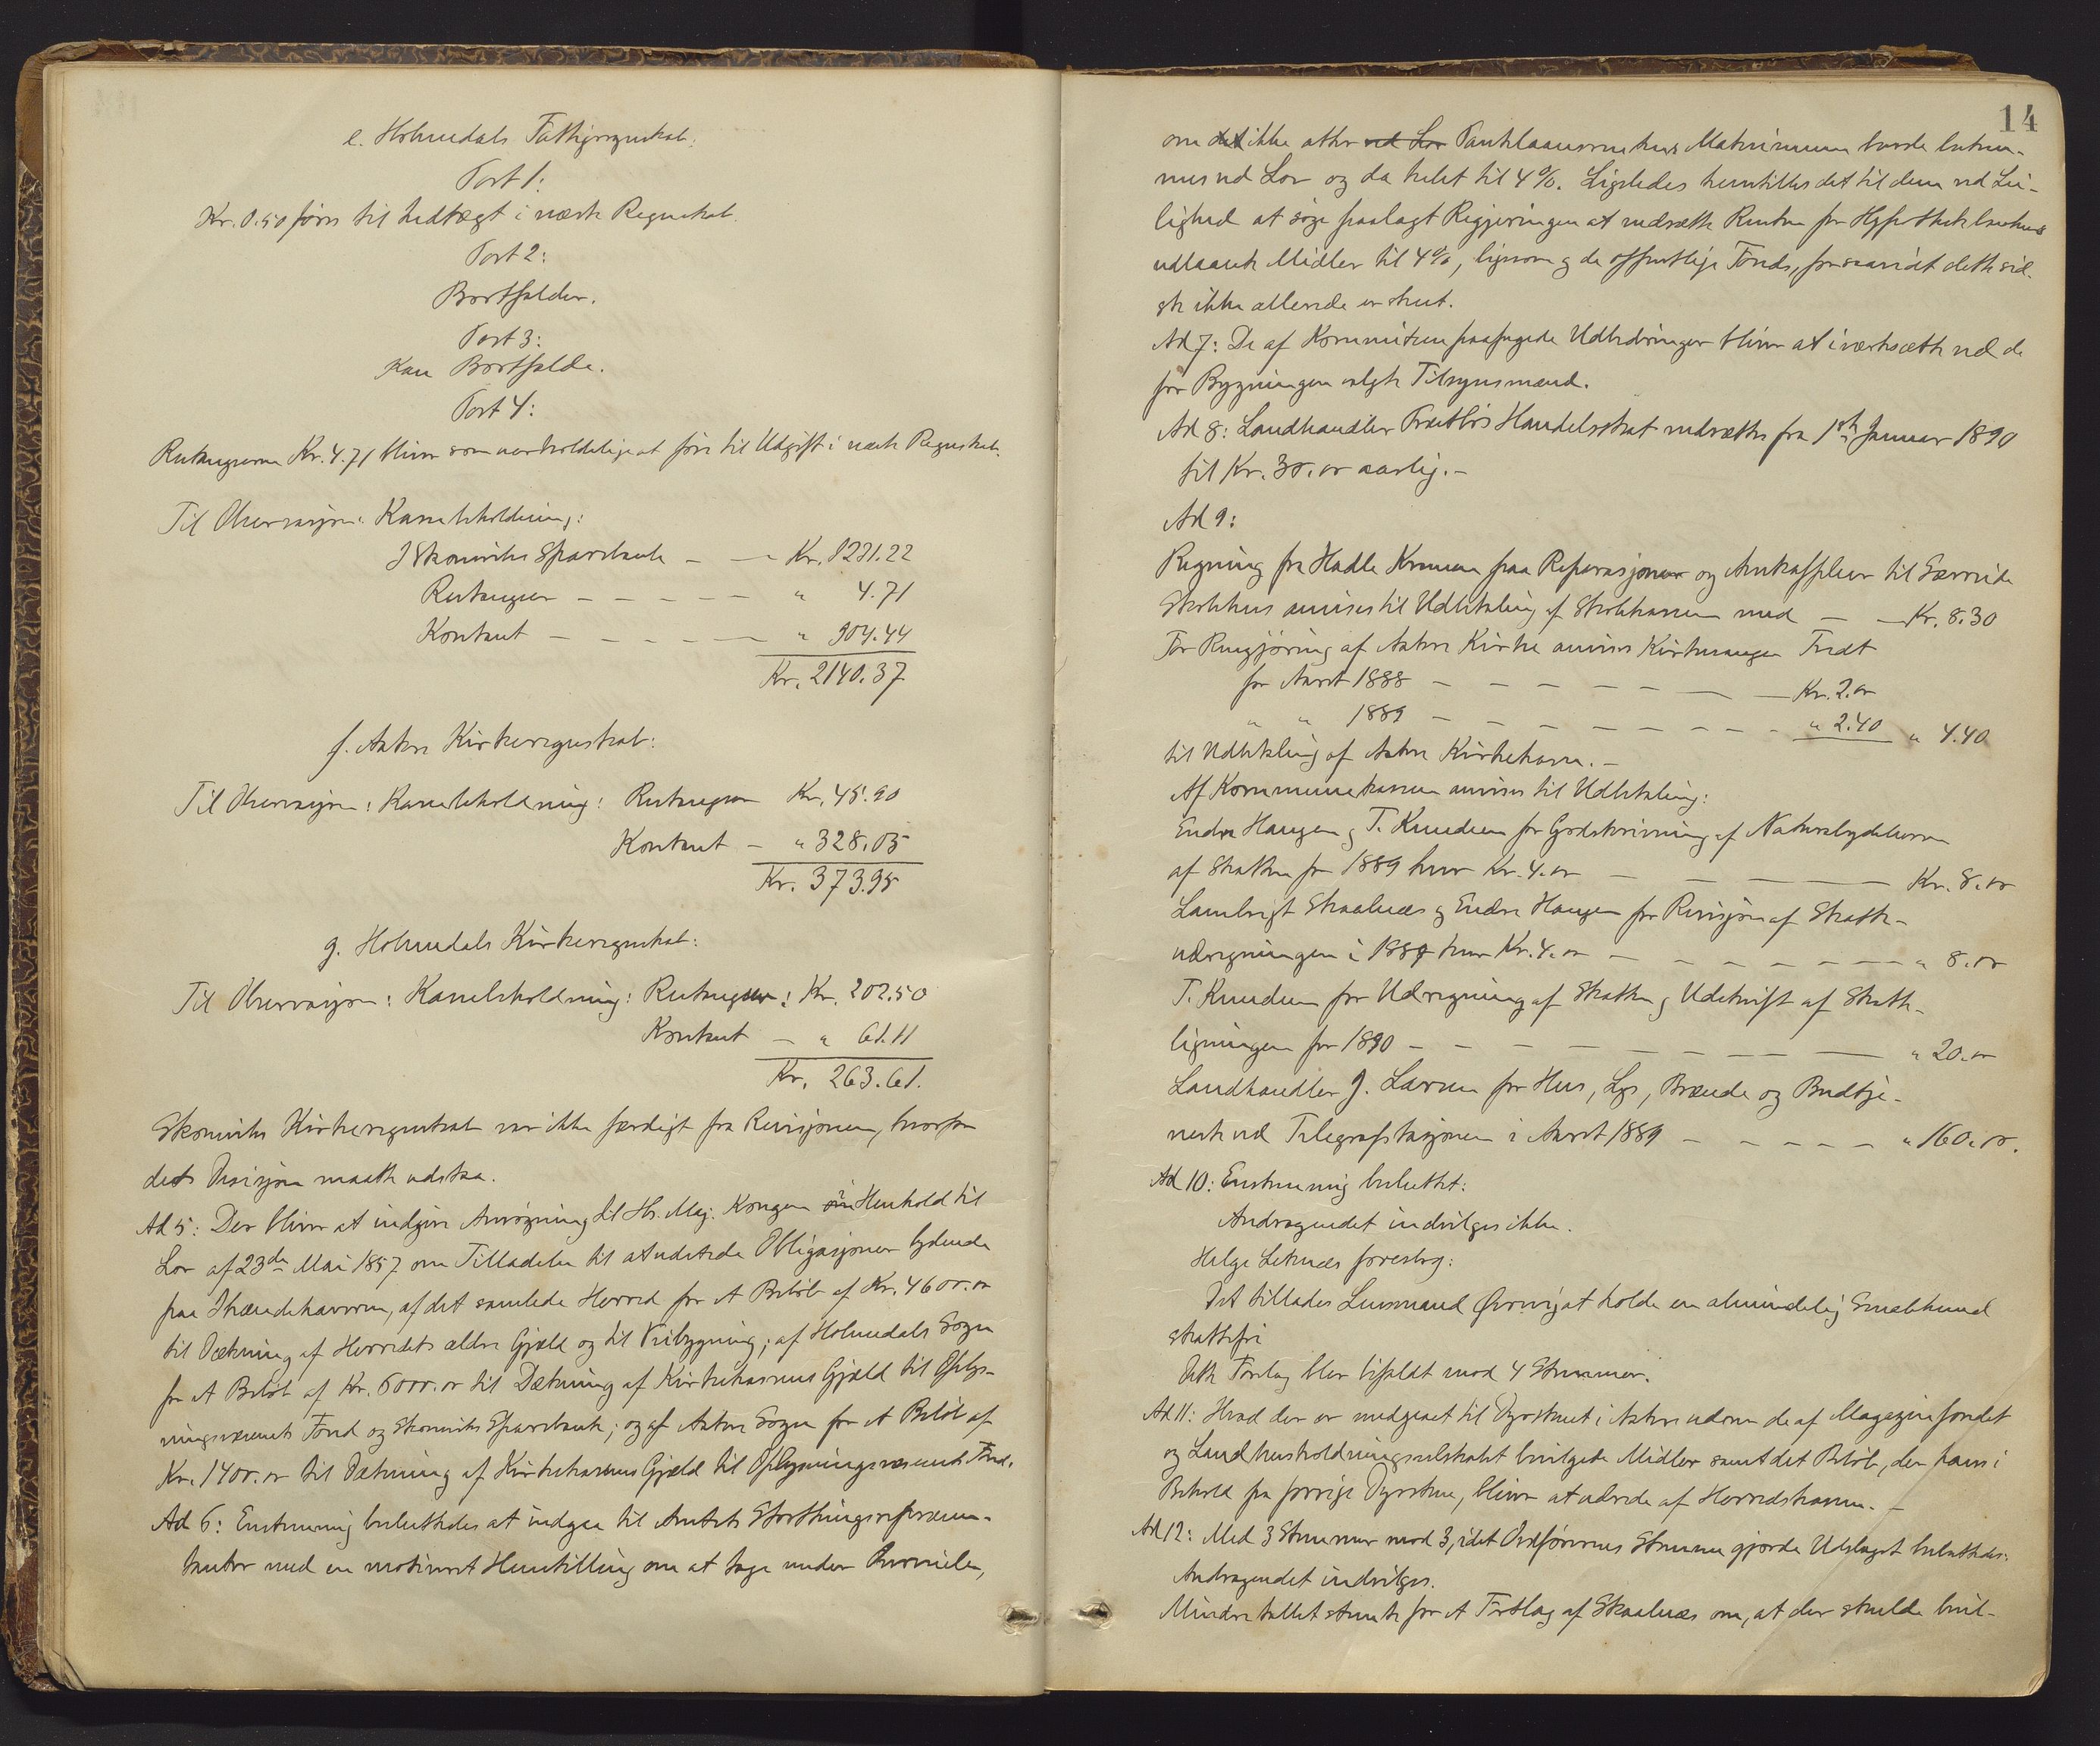 e. Holmedals Fattigregnskab.
Post 1:
Kr. 0.50 føres til Indtægt i næste Regnskab.
Post 2:
Bortfalder.
Post 3:
Kan Bortfalde.
Post 4:
Restancerne Kr. 4.71 bliver som uerholdelige at føre til Udgift i næste Regnskab.
Til Observasjon: Kassebeholdning:
I Skoneviks Sparebank — — Kr. 1231.22
Restanser — — — — — " 4.71
Kontant — — — — — " 904.44
Kr. 2140.37
f. Aakre Kirkeregnskab:
Til Observasjon: Kassebeholdning: Restanser Kr. 45.90
Kontant — " 328.05
Kr. 373.95
g. Holmedals Kirkeregnskab:
Til Observasjon: Kassebeholdning: Restanser: Kr. 202.50
Kontant — " 61.11
Kr. 263.61.
Skoneviks Kirkeregnskab var ikke færdigt fra Revisjonen, hvorfor
dets Desisjon maatte udstaa.
Ad 5: Der bliver at indgive Ansøgning til Hs. Maj. Kongen i Henhold til
Lov af 23de Mai 1857 om Tilladelse til at udstede Obligasjoner lydende
paa Ihændehaveren, af det samlede Herred for et Beløb af Kr. 4600.00
til Dækning af Herredets ældre Gjæld og til Veibygning; af Holmedals Sogn
for et Beløb af Kr. 6000.00 til Dækning af Kirkekassens Gjæld til Oplys-
ningsvæsenets Fond og Skoneviks Sparebank; og af Aakre Sogn for et Beløb af
Kr. 1400.00 til Dækning af Kirkekassens Gjæld til Oplysningsvæsenets Fond.
Ad 6: Enstemmig besluttedes at indgaa til Amtets Storthingsrepræsen-
tanter med en motiveret Henstilling om at tage under Overveielse,
14
om det ikke atter ved Lov Pantelaansrenternes Maksimum burde bestem-
mes ved Lov og da helst til 4 %. Ligeledes henstilles det til dem ved Lei-
lighed at søge paalagt Regjeringen at nedsætte Renten for Hypothekbankens
udlaante Midler til 4%, ligesom og de offentlige Fonds, forsaavidt dette sid-
ste ikke allerede er skeet.
Ad 7: De af Komiteen paapegede Udbedringer bliver at iværksætte ved de
for Bygningen valgte Tilsynsmænd.
Ad 8: Landhandler Handelsskat nedsættes fra 1ste Januar 1890
til Kr. 30.00 aarlig.—
Ad 9:
Regning fra Halle paa Reparasjoner og til
Skolehus anvises til Udbetaling af Skolekassen med — — Kr. 8.30
For Rengjøring af Aakre Kirke anvises Kirkesanger Tvedt
for Aaret 1888 — — — — — — — Kr. 2.00
" " 1889 — — — — — — — " 2.40 " 4.40
til Udbetaling af Aakre Kirkekasse.—
Af Kommunekassen anvises til Udbetaling:
Endre Haugen og T. Knudsen for Godskrivning af Naturalydelserne
af Skatten for 1889 hver Kr. 4.00 — — — — Kr. 8.00
Lambrigt Skaalnæs og Endre Haugen for Revisjon af Skatte-
udregningen i 1889 hver Kr. 4.00 — — — — — — — " 8.00
T. Knudsen for Udregning af Skatten og Udskrift af Skatte-
ligningen for 1890 — — — — — — — — — " 20.00
Landhandler J. Larsen for Hus, Lys, Brænde og Budtje-
neste ved Telegrafstasjonen i Aaret 1889 — — — — — " 160.00.
Ad 10: Enstemmig besluttet:
Andragendet indvilges ikke.
Helge Leknæs foreslog:
Det tillades Lensmand at holde en almindelig Smaahund
skattefri
Dette Forslag blev bifaldt mod 4 Stemmer.
Ad 11: Hvad der er medgaaet til Dyrskuet i Aakre udover de af Magazinfondet
og Landhusholdningsselskabet bevilgede Midler samt det Beløb, der haves i
Behold fra forrige Dyrskue, bliver at udrede af Herredskassen.—
Ad 12: Med 3 Stemmer mod 3, idet Ordførerens Stemme gjorde Udslaget besluttedes:
Andragendet indvilges.
Mindretallet stemte for et Forslag af Skaalnæs om, at der skulde bevil-